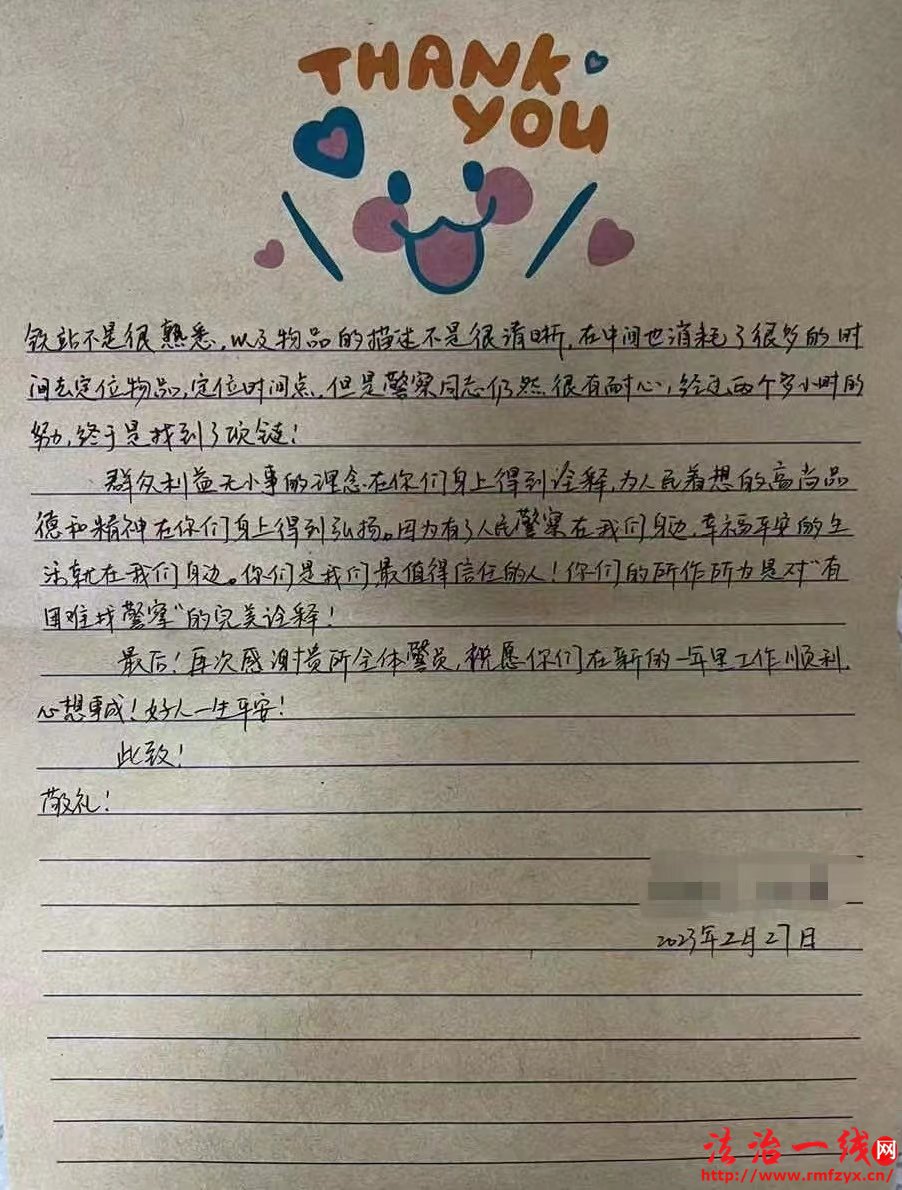 THANK
YOU
铁站不是很熟悉,以及物品的描述不是很清晰,在中间也消耗了很多的时
间去定位物品,定位时间点,但是警察同志仍然很有耐心,经过两个多小时的
努力,终于是找到了项链!
群众利益无小事的理念在你们身上得到诠释,为人民着想的高尚品
德和精神在你们身上得到弘扬。因为有了人民警察在我们身边,幸福平安的生
活就在我们身边。你们是我们最值得信任的人!你们的所作所为是对"有
困难找警察"的完美诠释!
最后!再次感谢贵所全体警员,祝愿你们在新的一年里工作顺利,
心想事成!好人一生平安!
此致!
敬礼!
2023年2月27日
法治一线网
http://www.rmfzyx.cn/